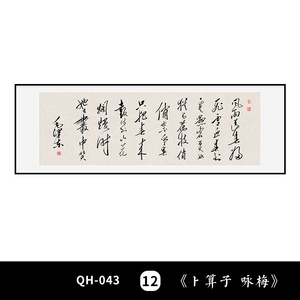 风雨送春归
飞雪迎春到
已是悬崖百丈冰
犹有花枝俏
俏也不争春
只把春来
報待到山花
爛漫時
她在叢中笑
毛泽东
QH-043
12
《卜算子 咏梅》